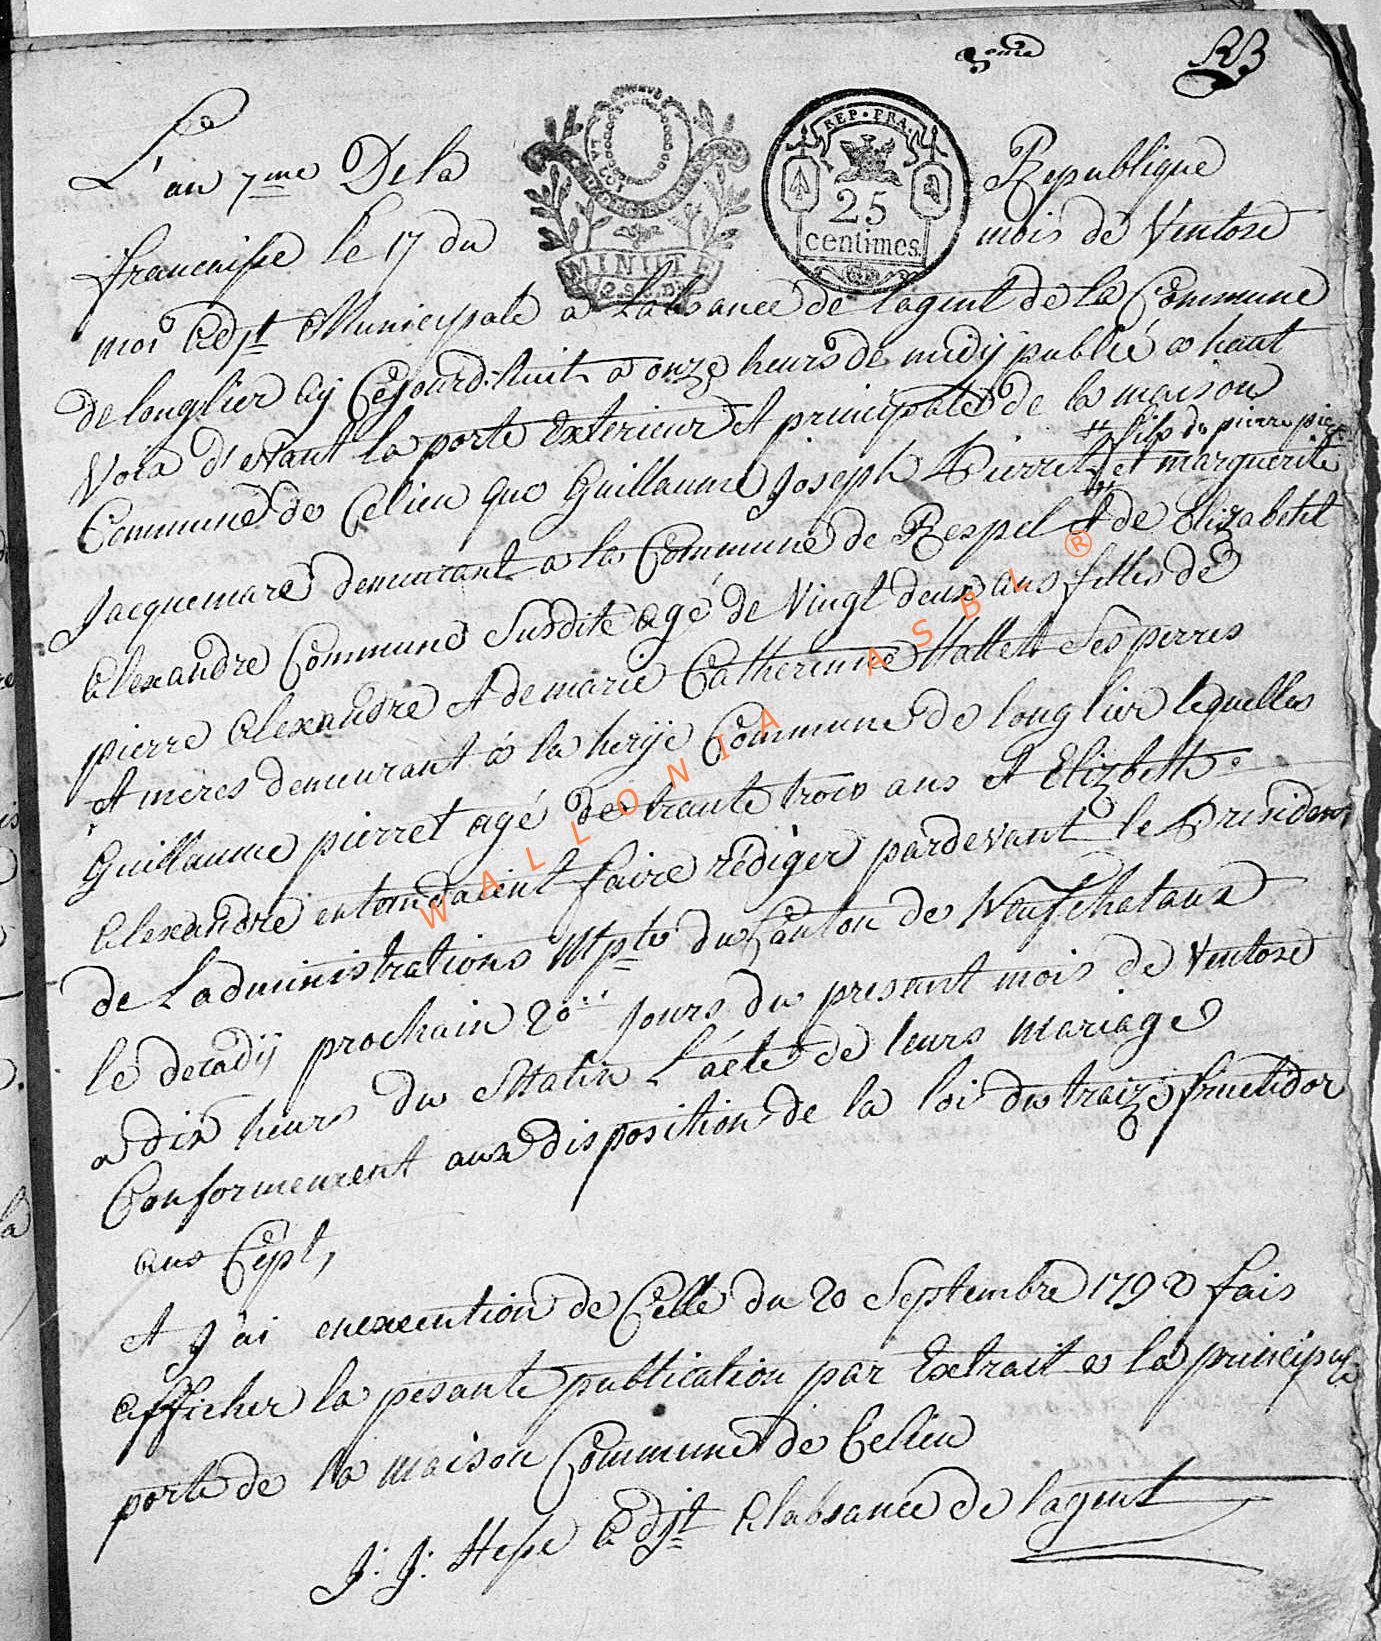 3eme RB
L'an 7me De la Republique
francaisse le 17 du mois de Ventose
REP. FRA.
25
centimes
MINUTE
moi adjt Municipale a Labsance de lagent de la Commune
de longlier ay Cejourd.huit a onze heurs de midÿ publié a haut
Voix d'evant la porte Exterieur et principale de la maison
Commune de Celieu que Guillaume Joseph Pierret fils de pierre pierret
et marguerite
Jacquemare demeurant a la Commune de Respel et de Elizabeth
alexandre Commune Susdite agé de Vingt deux ans filles de
pierre alexandre et de marie Catherinne Hallett Ses perres
et meres demeurant á la herÿe Commune de longlier lequelles
Guillaume pierret agé de trante trois ans et Elizbeth
alexandre entendaient faire rédiger pardevant le President
de Ladministrations Mple du Canton de Neufchataux
le decadÿ prochain 20 Jours du present mois de Ventose
a dix heurs du Matin L'acte de leurs mariage
Conformement aux disposition de la loi du traize fructidor
ans Cept,
et J'ai enexecution de Celle du 20 Septembre 1792 fais
afficher la pesante publication par Extrait a la principale
porte de la maison Commune de Celieu
J: J: Hesse adjt alabsance de lagent
WALLONIA ASBL ®